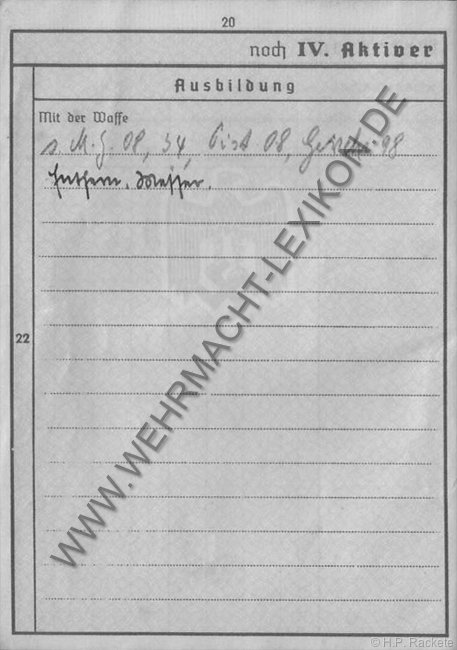 20
noch IV. Aktiver
Ausbildung
Mit der Waffe
s. M. G. 08, 34, Pist 08, 98
Entfern. Messer.
22
WWW.WEHRMACHT-LEXIKON.DE
© H.P. Rackete